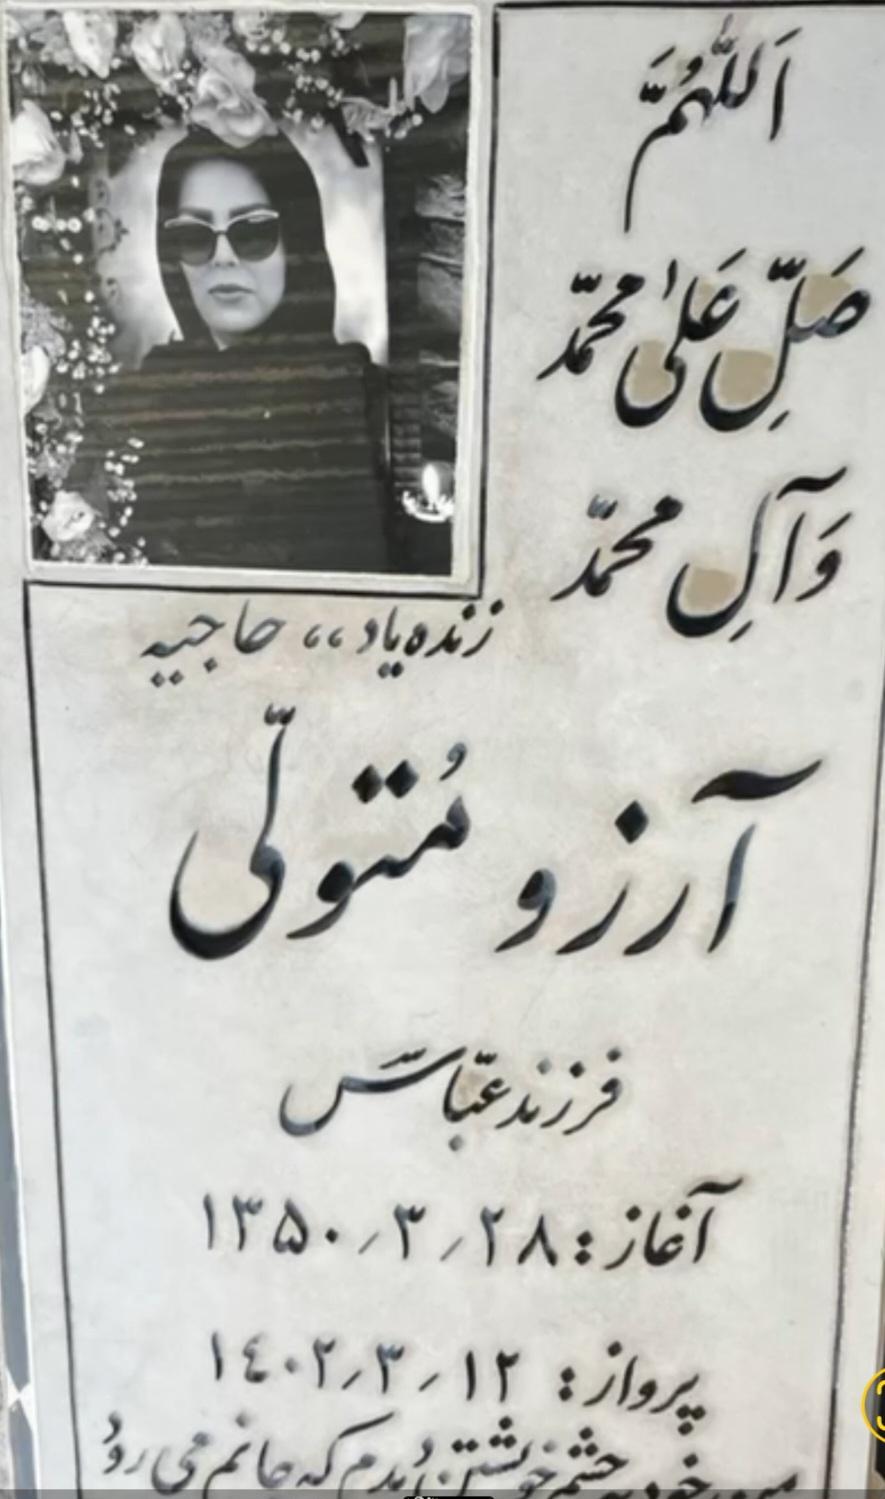 اَللّٰهُمَّ
صَلِّ عَلیٰ محمّد
وَآلِ محمّد
زنده‌یاد ،، حاجیه
آرزو مُتولّی
فرزند عبّاس
آغاز : ۲۸ / ۳ / ۱۳۵۰
پرواز : ۱۲ / ۳ / ۱۴۰۲
خود به چشم خویشتن دیدم که جانم می رود